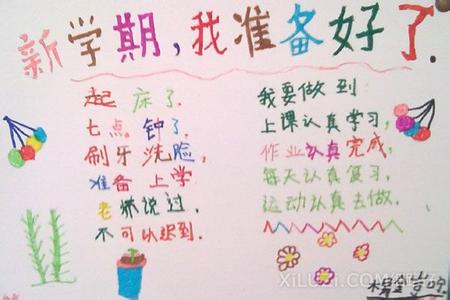 新学期,我准备好了.
起床了.
七点钟了.
刷牙洗脸,
准备上学.
老师说过,
不可以迟到.
我要做到:
上课认真学习,
作业认真完成,
每天认真复习,
运动认真去做.
XiLuZi.COM